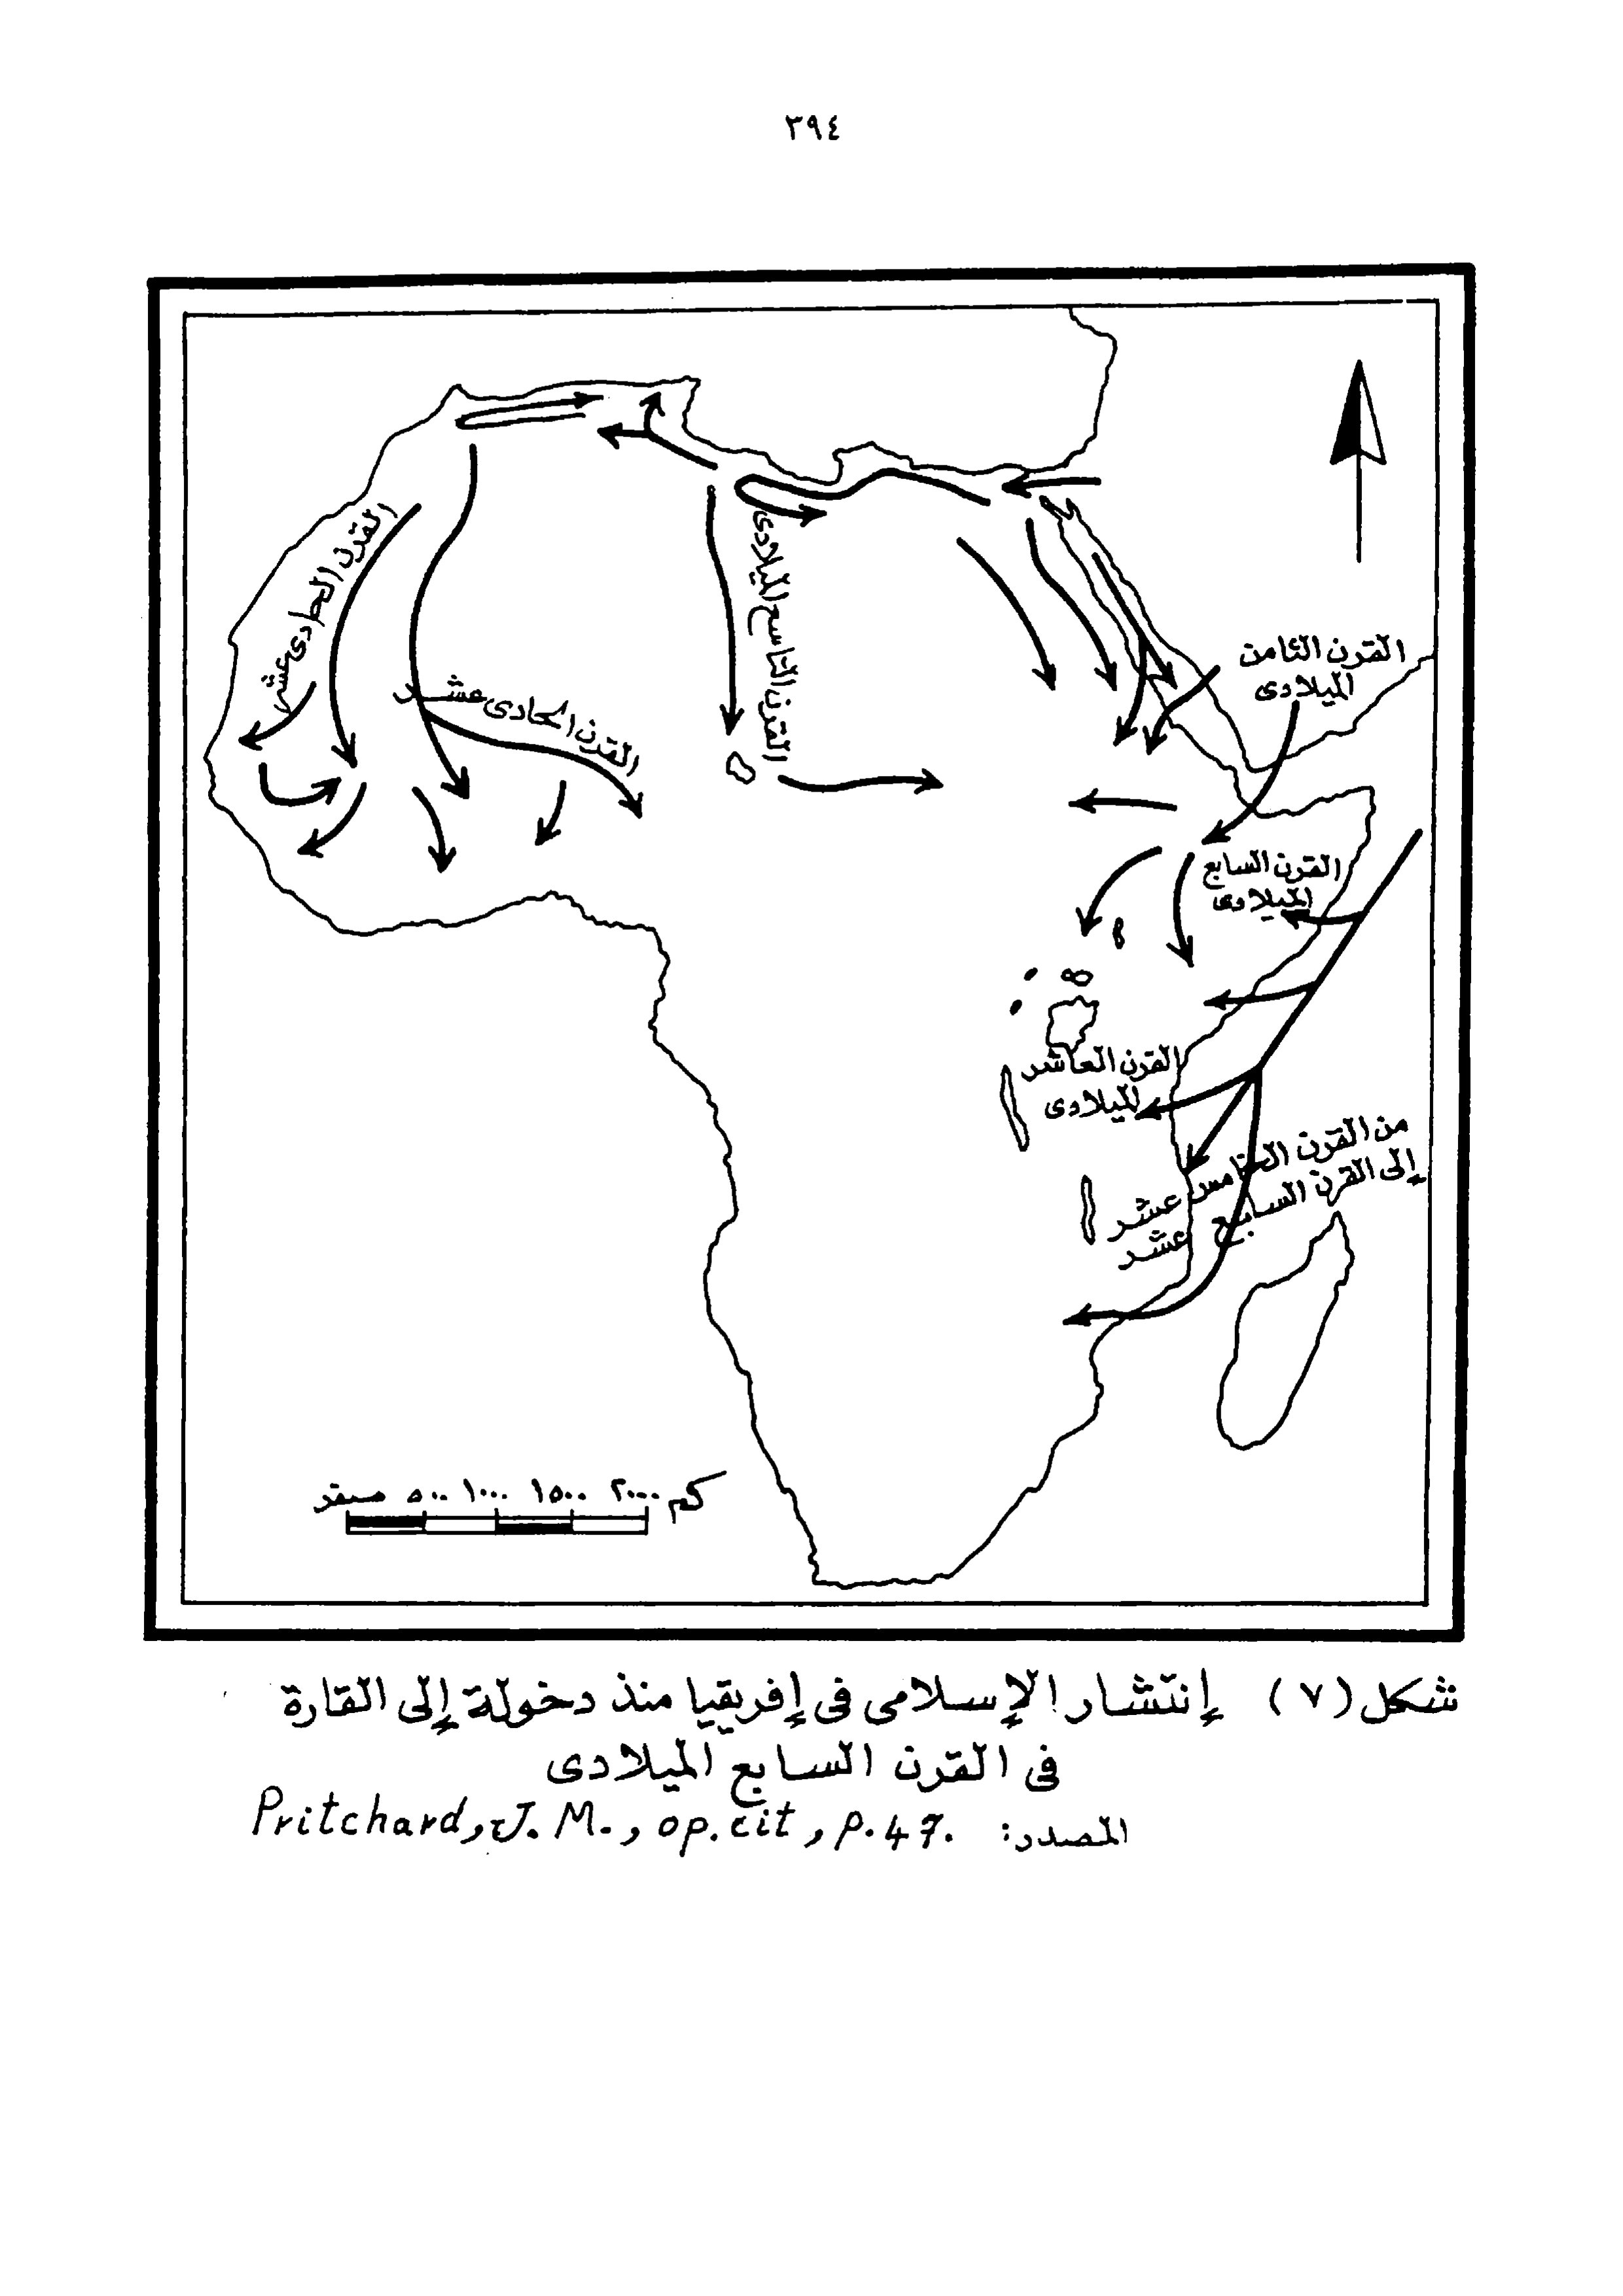 ٣٩٤
القرن الحادى عشر
القرن الحادى عشر
القرن التاسع الميلادى
القرن الثامن
الميلادى
القرن السابع
الميلادى
القرن العاشر
الميلادى
من القرن الخامس عشر
إلى القرن السابع عشر
صفر ٥٠٠ ١٠٠٠ ١٥٠٠ ٢٠٠٠ كم
شكل (٧) إنتشار الإسلامى فى إفريقيا منذ دخولة إلى القارة
فى القرن السابع الميلادى
المصدر: Pritchard, J. M., op.cit, p.47.